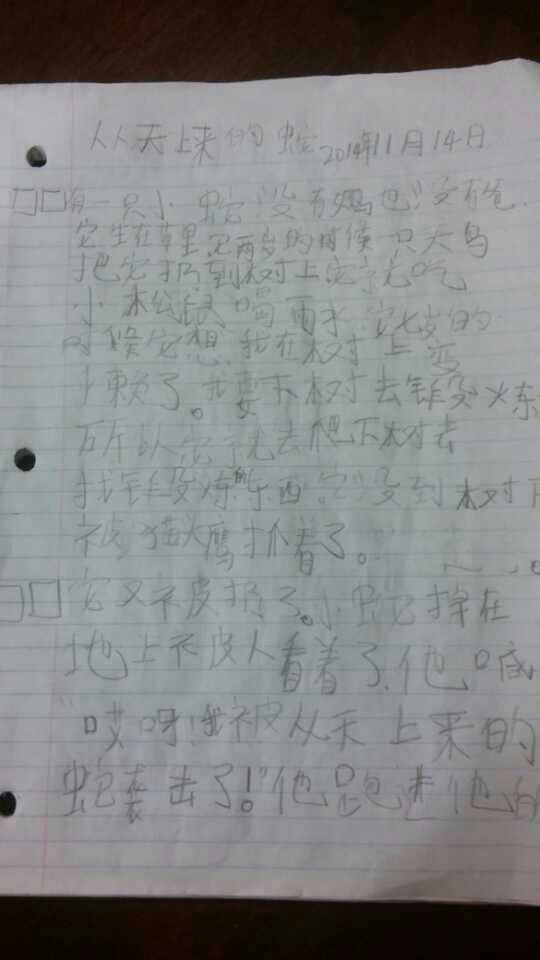 从天上来的蛇 2014年11月14日
有一只小蛇没有妈也没有爸.
它生在草里.它两岁的时候一只大鸟
把它扔到树上.它就吃
小松鼠喝雨水.它七岁的
时候它想.我在树上变
懒了。我要下树去锻炼
所以它就去爬下树去
找锻炼的东西.它没到树下
被猫头鹰抓着了。
它又被扔了。小蛇掉在
地上被人看着了.他喊
"哎呀!我被从天上来的
蛇袭击了!"他跑进他的